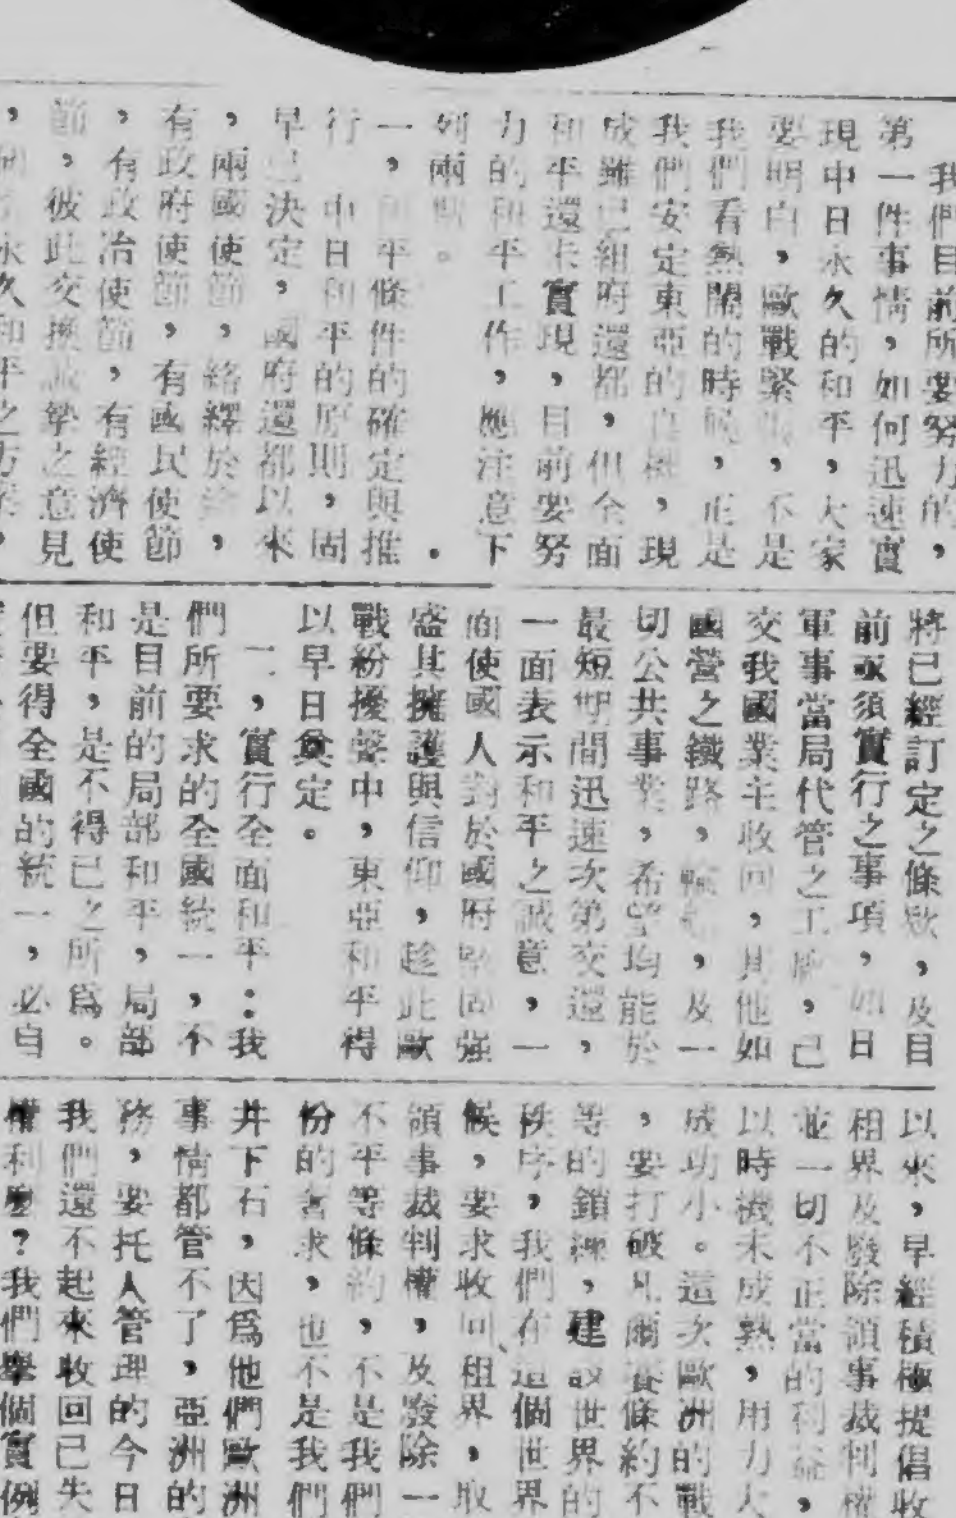 我們目前所要努力的，
第一件事情，如何迅速實
現中日永久的和平，大家
要明白，歐戰緊，不是
我們看熱鬧的時候，正是
我們安定東亞的機，現
成雖已組府還都，但全面
和平還未實現，目前要努
力的和平工作，應注意下
列兩點。
一，和平條件的確定與推
行　中日和平的原則，固
早已決定，國府還都以來
，兩國使節，絡繹於途，
有政府使節，有國民使節
，有政治使節，有經濟使
節，彼此交換誠摯之意見
，永久和平之方案，
將已經訂定之條欵，及目
前亟須實行之事項，如日
軍事當局代管之工廠，已
交我國業主收回，其他如
國營之鐵路，輪，及一
切公共事業，希望均能於
最短期間迅速次第交還，
一面表示和平之誠意，一
面使國人對於國府堅固強
盛其擁護與信仰，趁此歐
戰紛擾聲中，東亞和平得
以早日奠定。
二，實行全面和平：我
們所要求的全國統一，不
是目前的局部和平，局部
和平，是不得已之所爲。
但要得全國的統一，必自
以來，早經積極提倡收
租界及廢除領事裁判權
並一切不正當的利益，
以時機未成熟，用力大
成功小。這次歐洲的戰
，要打破凡爾賽條約不
等的鎖鍊，建設世界的
秩序，我們在這個世界
候，要求收回租界，取
領事裁判權，及廢除一
不平等條約，不是我們
份的奢求，也不是我們
井下石，因爲他們歐洲
事情都管不了，亞洲的
務，要托人管理的今日
我們還不起來收回已失
權利麼？我們舉個實例